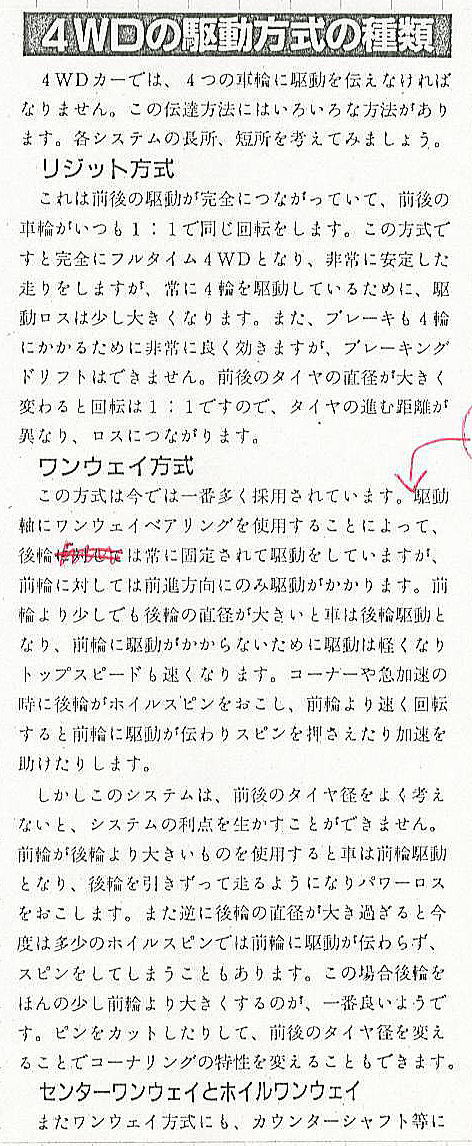 4WDの駆動方式の種類
4WDカーでは、4つの車輪に駆動を伝えなければ
なりません。この伝達方法にはいろいろな方法があり
ます。各システムの長所、短所を考えてみましょう。
リジット方式
これは前後の駆動が完全につながっていて、前後の
車輪がいつも1：1で同じ回転をします。この方式で
すと完全にフルタイム4WDとなり、非常に安定した
走りをしますが、常に4輪を駆動しているために、駆
動ロスは少し大きくなります。また、ブレーキも4輪
にかかるために非常に良く効きますが、ブレーキング
ドリフトはできません。前後のタイヤの直径が大きく
変わると回転は1：1ですので、タイヤの進む距離が
異なり、ロスにつながります。
ワンウェイ方式
この方式は今では一番多く採用されています。駆動
軸にワンウェイベアリングを使用することによって、
後輪は常に固定されて駆動をしていますが、
前輪に対しては前進方向にのみ駆動がかかります。前
輪より少しでも後輪の直径が大きいと車は後輪駆動と
なり、前輪に駆動がかからないために駆動は軽くなり
トップスピードも速くなります。コーナーや急加速の
時に後輪がホイルスピンをおこし、前輪より速く回転
すると前輪に駆動が伝わりスピンを押さえたり加速を
助けたりします。
しかしこのシステムは、前後のタイヤ径をよく考え
ないと、システムの利点を生かすことができません。
前輪が後輪より大きいものを使用すると車は前輪駆動
となり、後輪を引きずって走るようになりパワーロス
をおこします。また逆に後輪の直径が大き過ぎると今
度は多少のホイルスピンでは前輪に駆動が伝わらず、
スピンをしてしまうこともあります。この場合後輪を
ほんの少し前輪より大きくするのが、一番良いようで
す。ピンをカットしたりして、前後のタイヤ径を変え
ることでコーナリングの特性を変えることもできます。
センターワンウェイとホイルワンウェイ
またワンウェイ方式にも、カウンターシャフト等に